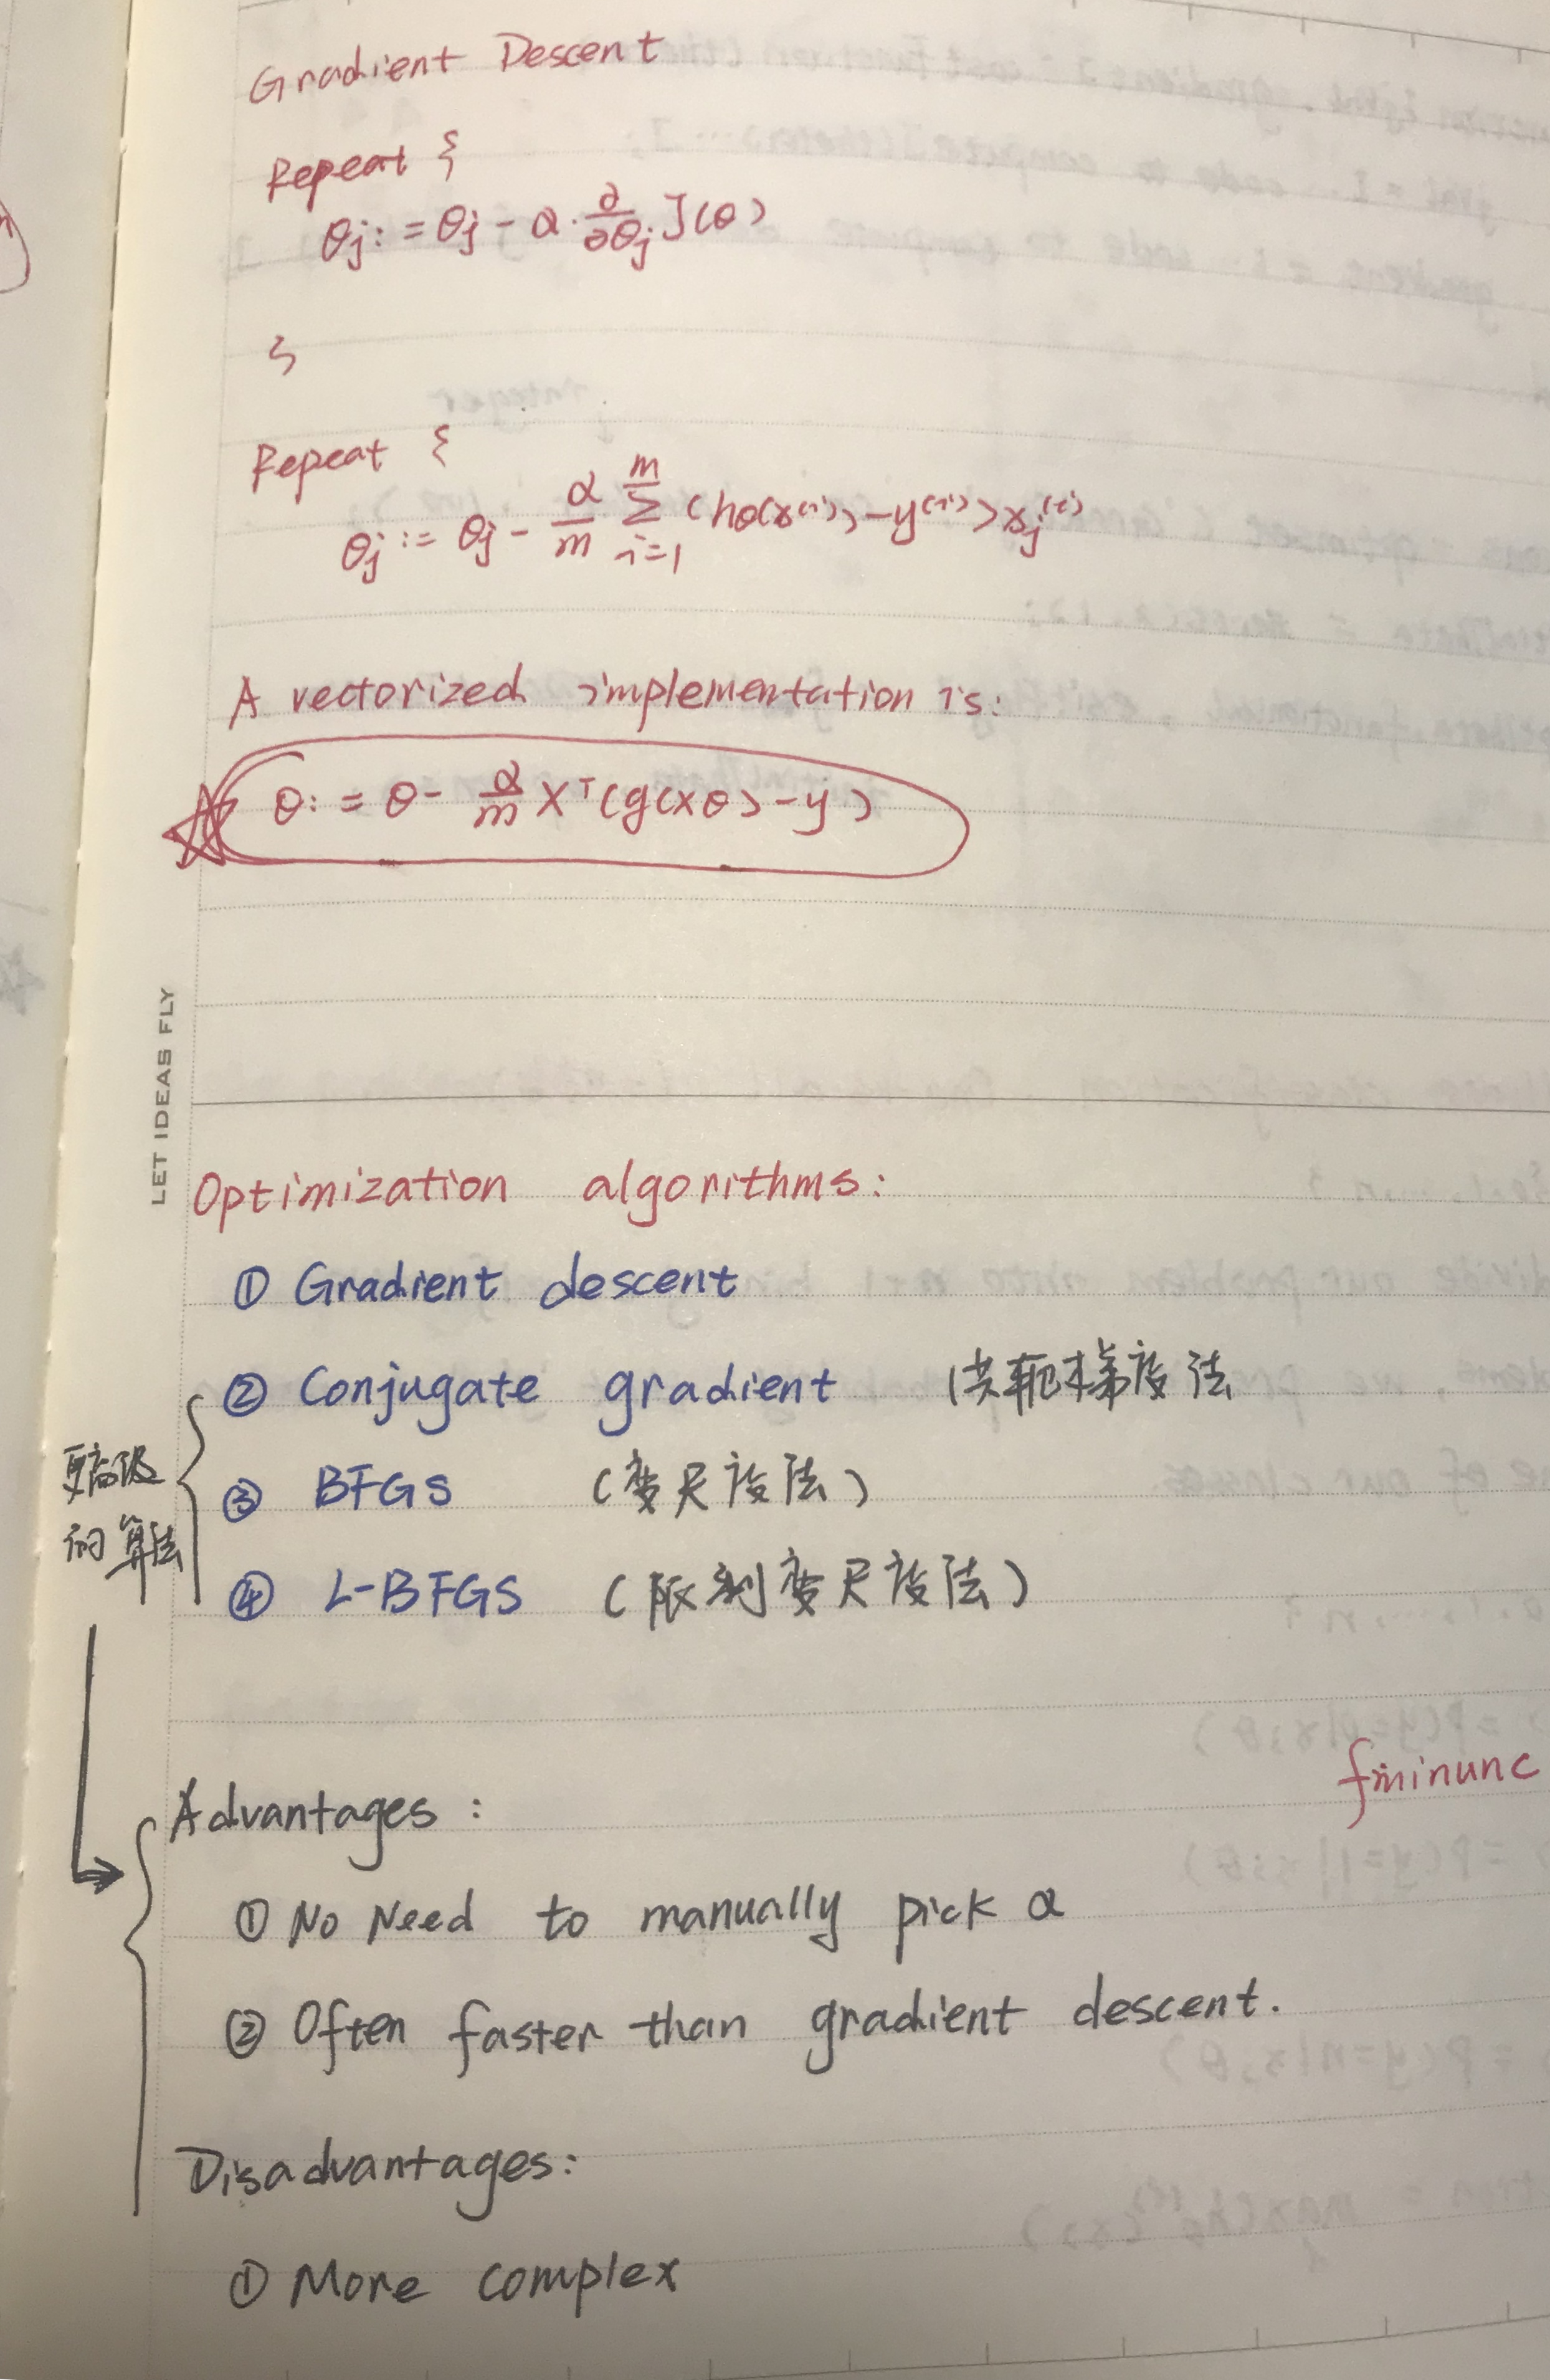 Gradient Descent
Repeat {
θj := θj - α · ∂/∂θj J(θ)
}
Repeat {
θj := θj - α/m Σ_{i=1}^{m} (hθ(x^(i)) - y^(i)) xj^(i)
A vectorized implementation is:
θ := θ - α/m X^T (g(Xθ) - y)
LET IDEAS FLY
Optimization algorithms:
① Gradient descent
② Conjugate gradient 共轭梯度法
③ BFGS (变尺度法)
④ L-BFGS (限制变尺度法)
更高级
的算法
fminunc
Advantages:
① No Need to manually pick α
② Often faster than gradient descent.
Disadvantages:
① More complex